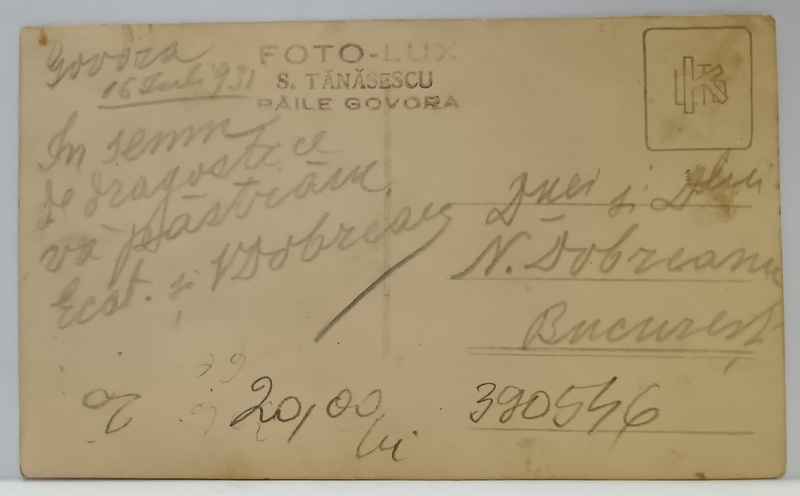 Govora
16 Iuli 931
FOTO-LUX
S. TĂNĂSESCU
BĂILE GOVORA
In semn
de dragoste ce
vă păstrăm
Ecat. și V Dobreanu
Dnei și Dlui
N. Dobreanu
București
20,00
lei
390546